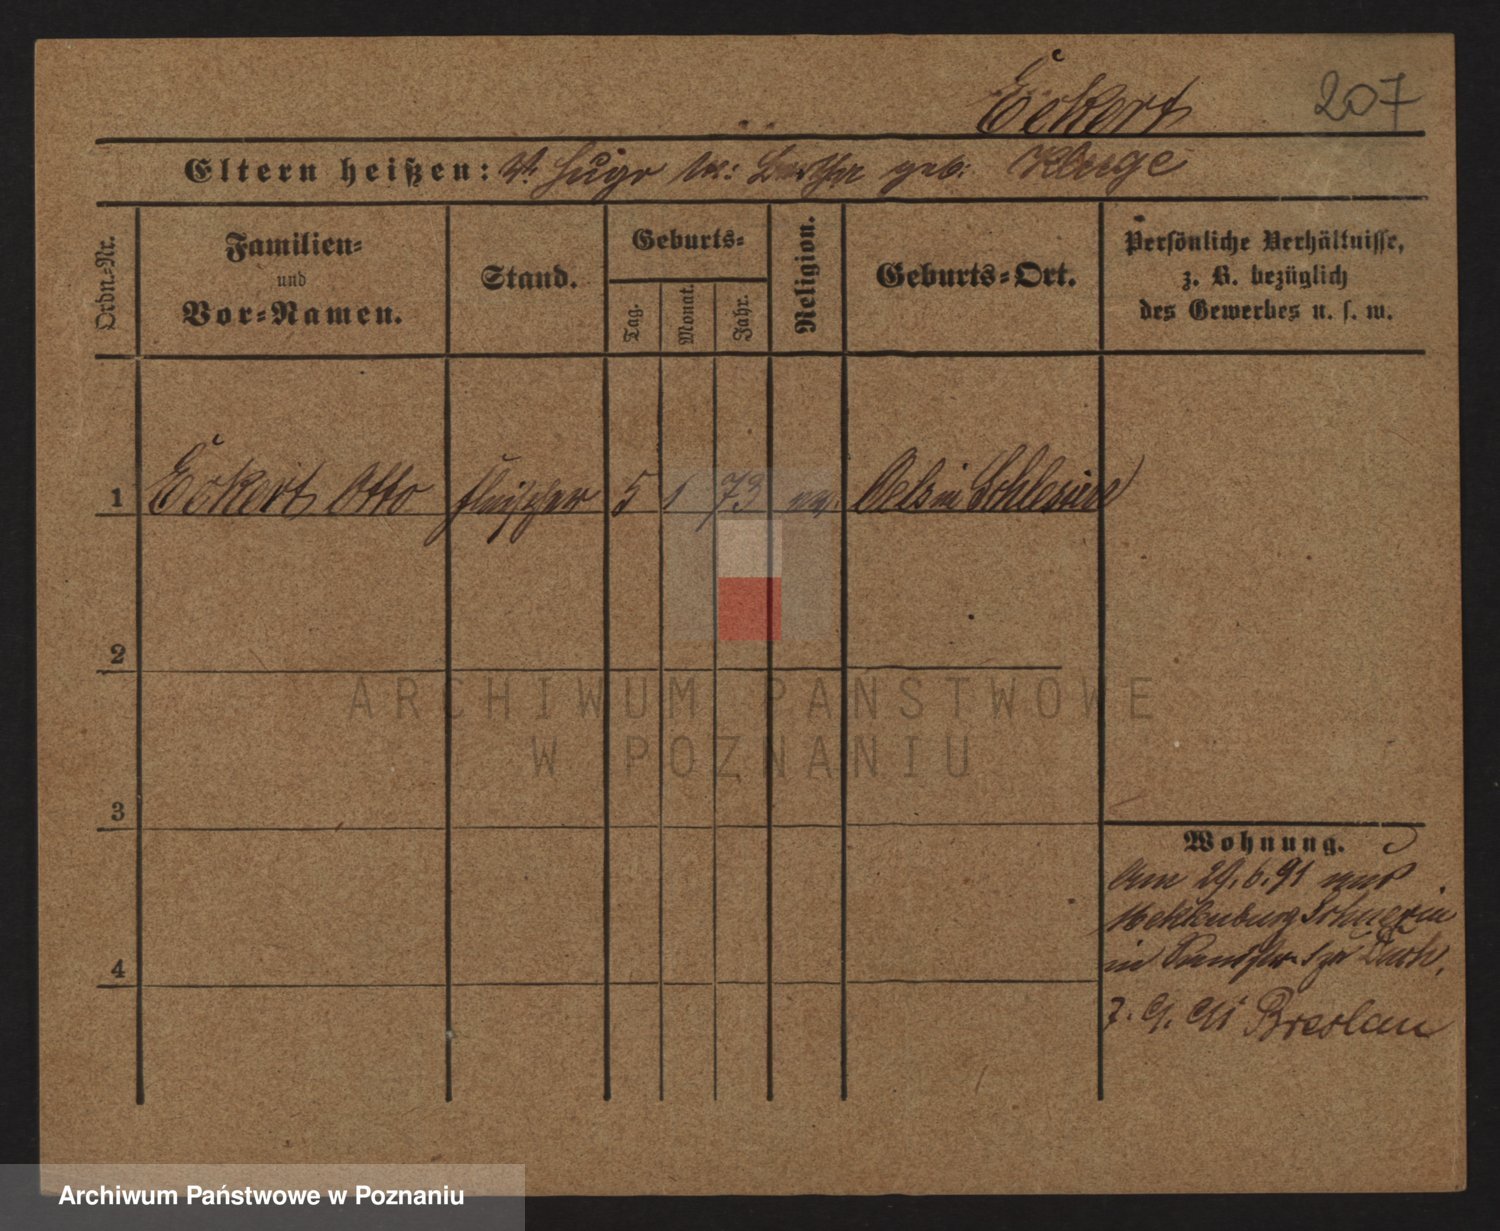 Eckert
207
Eltern heißen: V. Hugo M: Bertha geb. Kluge
Ordn.-Nr.
Familien-
und
Vor-Namen.
Stand.
Geburts-
Tag.
Monat.
Jahr.
Religion.
Geburts-Ort.
Persönliche Verhältnisse,
z. B. bezüglich
des Gewerbes u. s. w.
1 Eckert Otto Fleischer 5 1 73 ev. Oels in Schlesien
2
3
4
Wohnung.
Am 29.6.91 aus
Meklenburg Schwerin
in
Breslau
ARCHIWUM PAŃSTWOWE
W POZNANIU
Archiwum Państwowe w Poznaniu